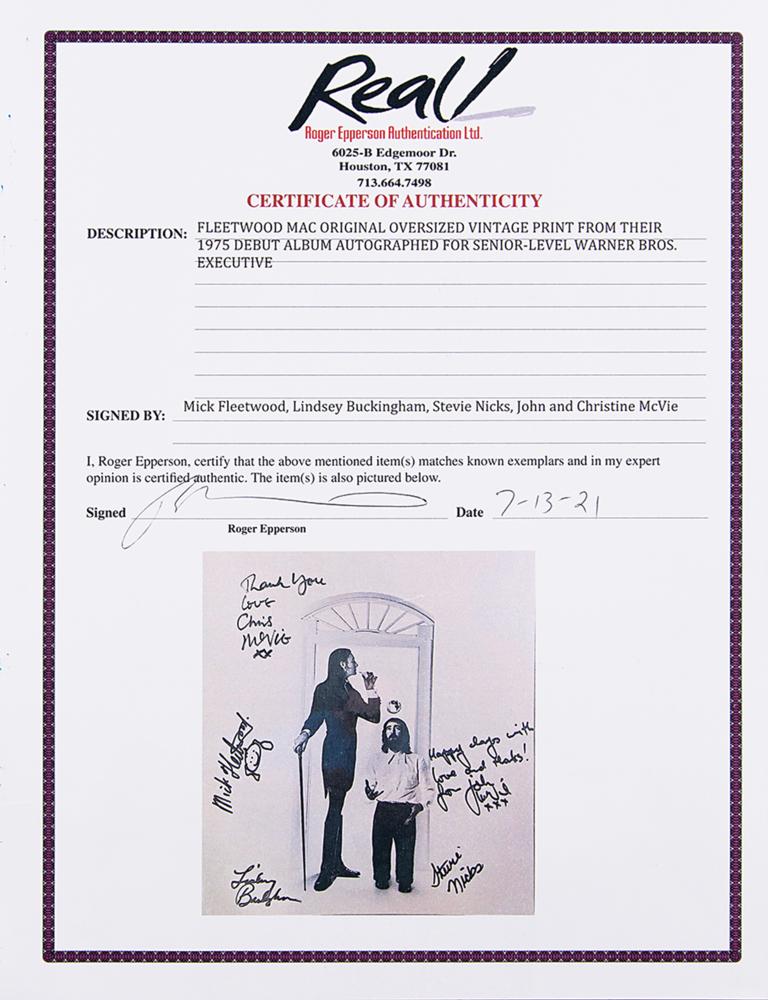 Real!
Roger Epperson Authentication Ltd.
6025-B Edgemoor Dr.
Houston, TX 77081
713.664.7498
CERTIFICATE OF AUTHENTICITY
DESCRIPTION: FLEETWOOD MAC ORIGINAL OVERSIZED VINTAGE PRINT FROM THEIR
1975 DEBUT ALBUM AUTOGRAPHED FOR SENIOR-LEVEL WARNER BROS.
EXECUTIVE
SIGNED BY: Mick Fleetwood, Lindsey Buckingham, Stevie Nicks, John and Christine McVie
I, Roger Epperson, certify that the above mentioned item(s) matches known exemplars and in my expert
opinion is certified authentic. The item(s) is also pictured below.
Signed Date 7-13-21
Roger Epperson
Thank You
Love
Chris
McVie
xx
Mick Fleetwood
Happy days with
love and
John
xxx
Stevie
Nicks